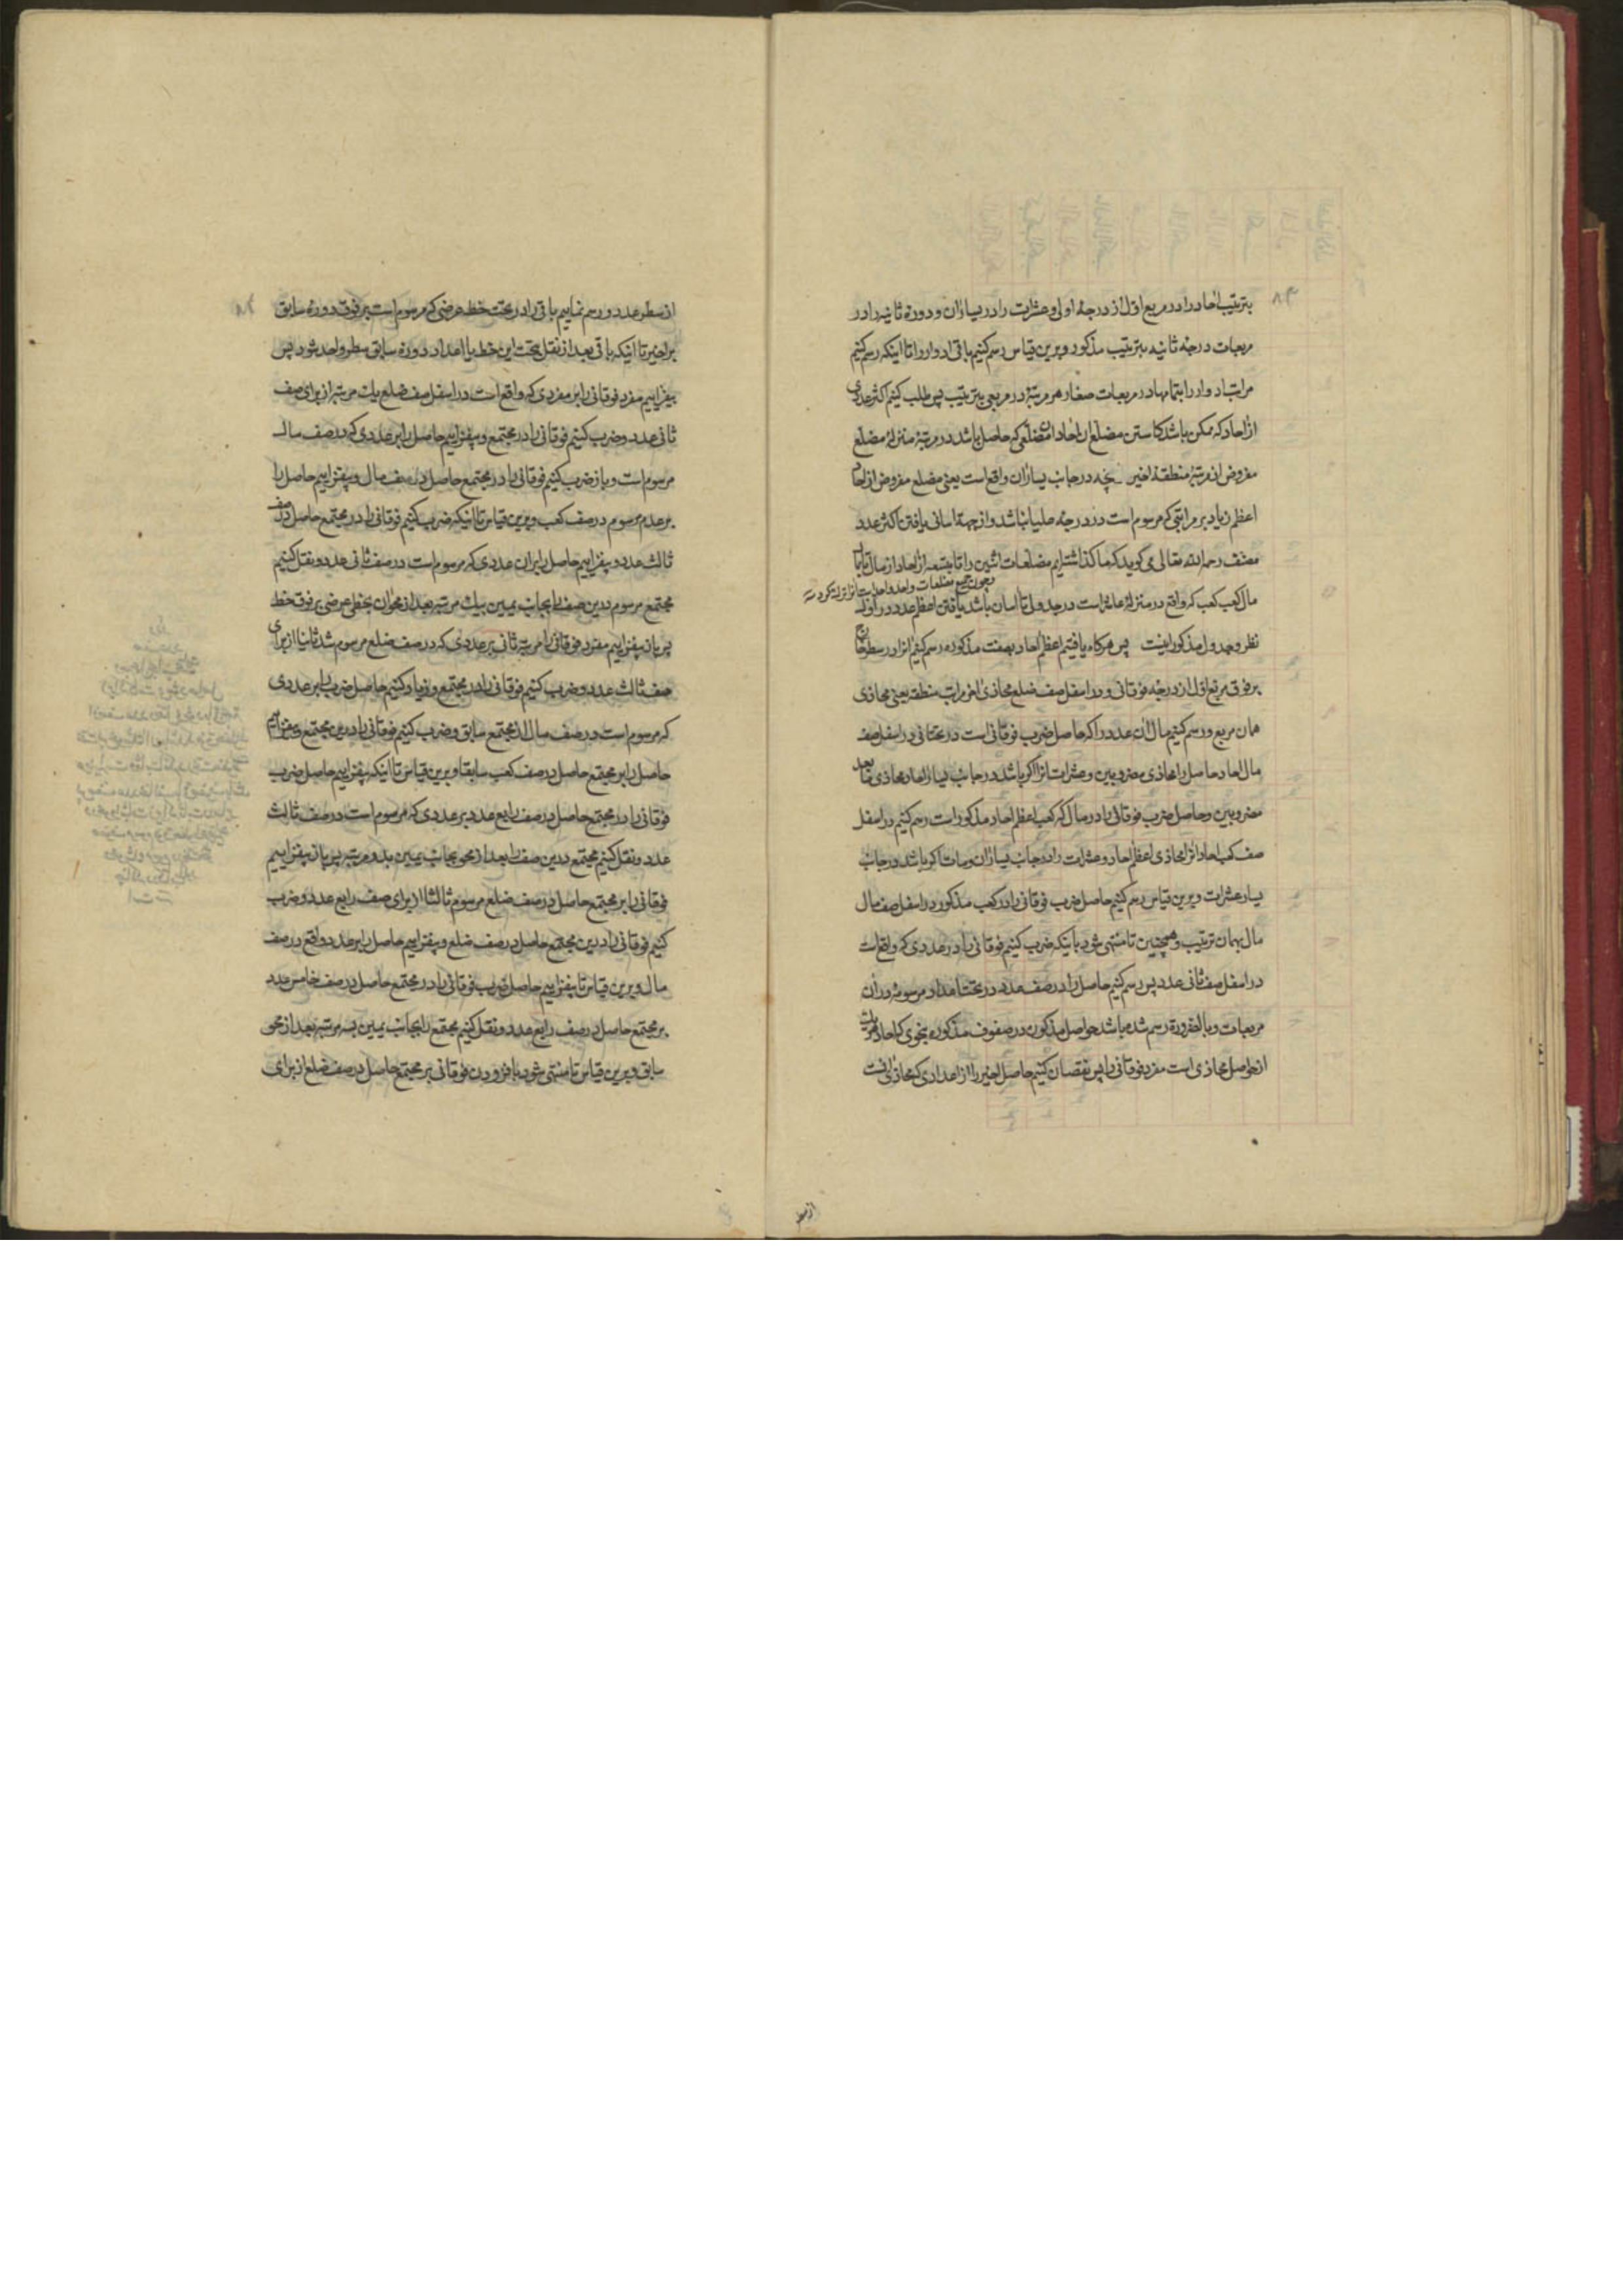 ۸۳
بترتیب احاد را در مربع اول از درجهٔ اولی و عشرات را در یسار ان و دورهٔ ثانیه را در
مربعات درجهٔ ثانیه بترتیب مذکور و برین قیاس رسم کنیم باقی ادوار را تا اینکه رسم کنیم
مراتب ادوار را بتمامها در مربعات صغار هر مرتبهٔ در مربعی بترتیب پس طلب کنیم اکثر عددی
از احاد که ممکن باشد کاستن مضلع ان احاد ان مضلعی که حاصل باشد در مرتبهٔ منزلهٔ مضلع
مفروض از مرتبهٔ منطقهٔ اخیر بچه در جانب یسار ان واقع است یعنی مضلع مفروض از احاد
اعظم زیاد بر مراتبی که مرسوم است در درجهٔ علیا نباشد و از جهة اسانی یافتن اکثر عدد
مصنف رحمه الله تعالی می گوید که ما گذاشته ایم مضلعات اثنین را تا بتسعه از احاد از مال تا
مال کعب کعب که واقع در منزلهٔ عاشر است در جدول تا اسان باشد یافتن اعظم عدد در اول
و چون جمیع مضلعات واحد واحد است انرا ترک کردیم
نظر و جدول مذکور اینست پس هر کاه یافتیم اعظم احاد بصفت مذکوره رسم کنیم انرا در سطر خارج
بر فوق مربع اول از درجهٔ فوقانی و در اسفل صف ضلع محاذی اخر مراتب منطقه یعنی محاذی
همان مربع و رسم کنیم مال ان عدد را که حاصل ضرب فوقانی است در تحتانی در اسفل صف
مال احاد حاصل را محاذی مضروبین و عشرات انرا اکر باشد در جانب یسار احاد محاذی مابعد
مضروبین و حاصل ضرب فوقانی را در مال که کعب اعظم احاد مذکور است رسم کنیم در اسفل
صف کعب احاد انرا محاذی اعظم احاد و عشرات را در جانب یسار ان و مات اکر باشد در جانب
یسار عشرات و برین قیاس رسم کنیم حاصل ضرب فوقانی را در کعب مذکور در اسفل صف مال
مال بهمان ترتیب و همچنین تا منتهی شود باینکه ضرب کنیم فوقانی را در عددی که واقع است
در اسفل صف ثانی عدد پس رسم کنیم حاصل را در صف عدد در تحت اعداد مرسومه در ان
مربعات و بالضروره رسم شده باشد حواصل مذکوره در صفوف مذکوره بنحوی که احاد هر یک
از حواصل محاذی است مفرد فوقانی را پس نقصان کنیم حاصل اخیر را از اعدادی که محاذی انست
از سطر
از سطر عدد و رسم نماییم باقی را در تحت خط عرضی که مرسوم است بر فوق دورهٔ سابق
بر اخیر تا اینکه باقی بعد از نقل تحت این خط با اعداد دورهٔ سابق سطر واحد شود پس
بیفزاییم مفرد فوقانی را بر مفردی که واقع است در اسفل صف ضلع یک مرتبه از برای صف
ثانی عدد و ضرب کنیم فوقانی را در مجتمع و بیفزاییم حاصل را بر عددی که در صف مال
مرسوم است و باز ضرب کنیم فوقانی را در مجتمع حاصل در صف مال و بیفزاییم حاصل را
بر عدد مرسوم در صف کعب و برین قیاس تا اینکه ضرب کنیم فوقانی را در مجتمع حاصل در صف
ثالث عدد و بیفزاییم حاصل را بر ان عددی که مرسوم است در صف ثانی عدد و نقل کنیم
مجتمع مرسوم درین صف را بجانب یمین بیک مرتبه بعد از محو ان بخطی عرضی بر فوق خط
پس باز بیفزاییم مفرد فوقانی را مرتبهٔ ثانی بر عددی که در صف ضلع مرسوم شد ثانیا از برای
صف ثالث عدد و ضرب کنیم فوقانی را در مجتمع و زیاد کنیم حاصل ضرب را بر عددی
که مرسوم است در صف مال از مجتمع سابق و ضرب کنیم فوقانی را درین مجتمع و بیفزاییم
حاصل را بر مجتمع حاصل در صف کعب سابقا و برین قیاس تا اینکه بیفزاییم حاصل ضرب
فوقانی را در مجتمع حاصل در صف رابع عدد بر عددی که مرسوم است در صف ثالث
عدد و نقل کنیم مجتمع درین صف را بعد از محو بجانب یمین بدو مرتبه پس باز بیفزاییم
فوقانی را بر مجتمع حاصل در صف ضلع مرسوم ثالثا از برای صف رابع عدد و ضرب
کنیم فوقانی را درین مجتمع حاصل در صف ضلع و بیفزاییم حاصل را بر عدد واقع در صف
مال و برین قیاس تا بیفزاییم حاصل ضرب فوقانی را در مجتمع حاصل در صف خامس عدد
بر مجتمع حاصل در صف رابع عدد و نقل کنیم مجتمع را بجانب یمین بسه مرتبه بعد از محو
سابق و برین قیاس تا منتهی شود بافزودن فوقانی بر مجتمع حاصل در صف ضلع از برای